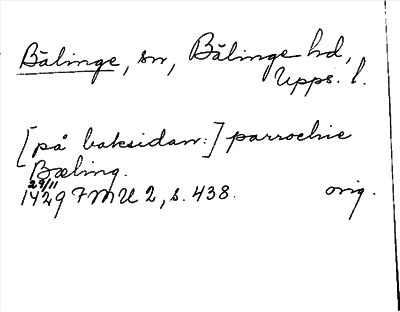 Bälinge, sn, Bälinge hd,
Upps. l.
[på baksidan:] parrochie
Bæling.
29/11
1429 FMU 2, s. 438. orig.